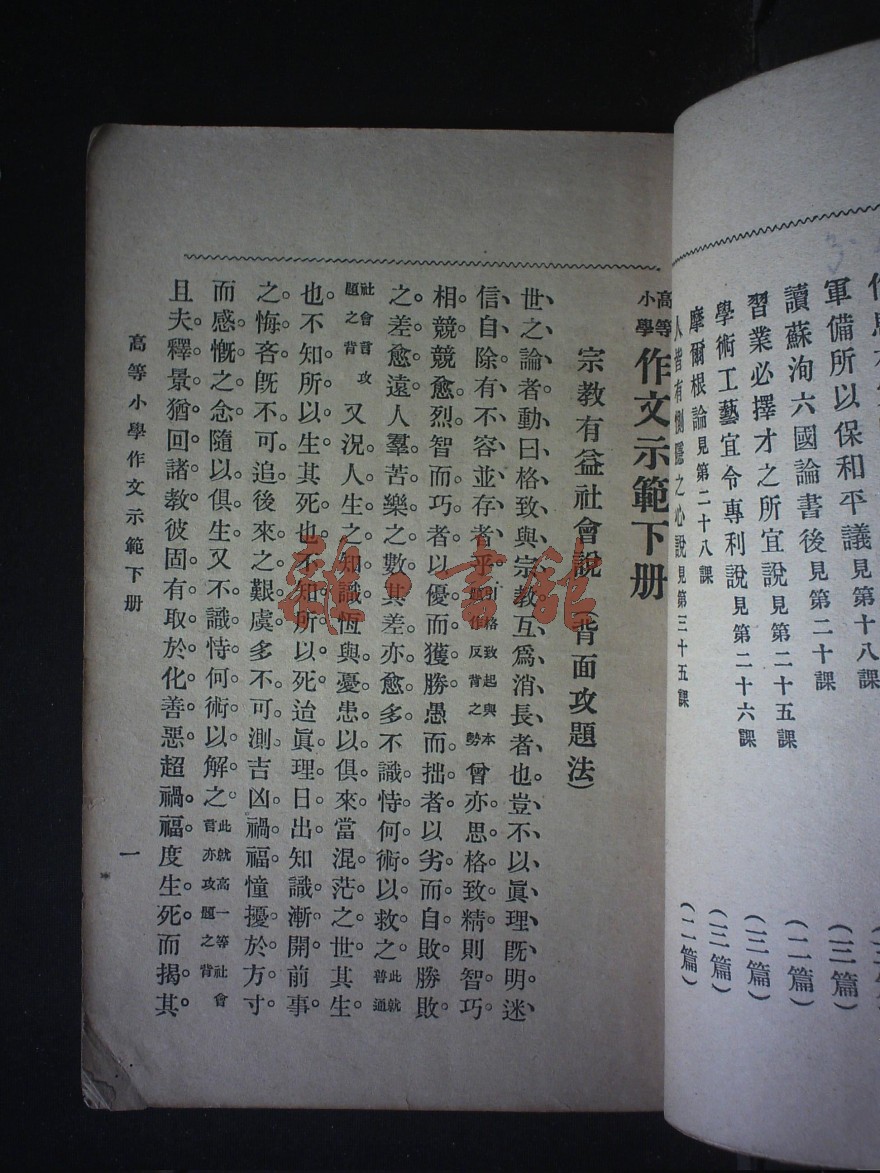 軍備所以保和平議見第十八課(三篇)
讀蘇洵六國論書後見第二十課(二篇)
習業必擇才之所宜說見第二十五課(三篇)
學術工藝宜令專利說見第二十六課(三篇)
摩爾根論見第二十八課(三篇)
人皆有惻隱之心說見第三十五課(二篇)
高等小學作文示範下册
宗教有益社會說(背面攻題法)
世之論者動曰格致與宗教互爲消長者也豈不以眞理旣明。迷
信自除有不容並存者乎引格致起與本題作反背之勢曾亦思格致精則智巧
相競競愈烈智而巧者以優而獲勝愚而拙者以劣而自敗勝敗
之差愈遠人羣苦樂之數其差亦愈多不識恃何術以救之此就普通
社會言攻題之背又況人生之知識恆與憂患以俱來當混茫之世其生
也不知所以生其死也不知所以死迨眞理日出知識漸開前事
之悔吝旣不可追後來之艱虞多不可測吉凶禍福憧擾於方寸
而感慨之念隨以俱生又不識恃何術以解之此就高一等社會言亦攻題之背
且夫釋景猶回諸教彼固有取於化善惡超禍福度生死而揭其
高等小學作文示範下册
一
雜·書館